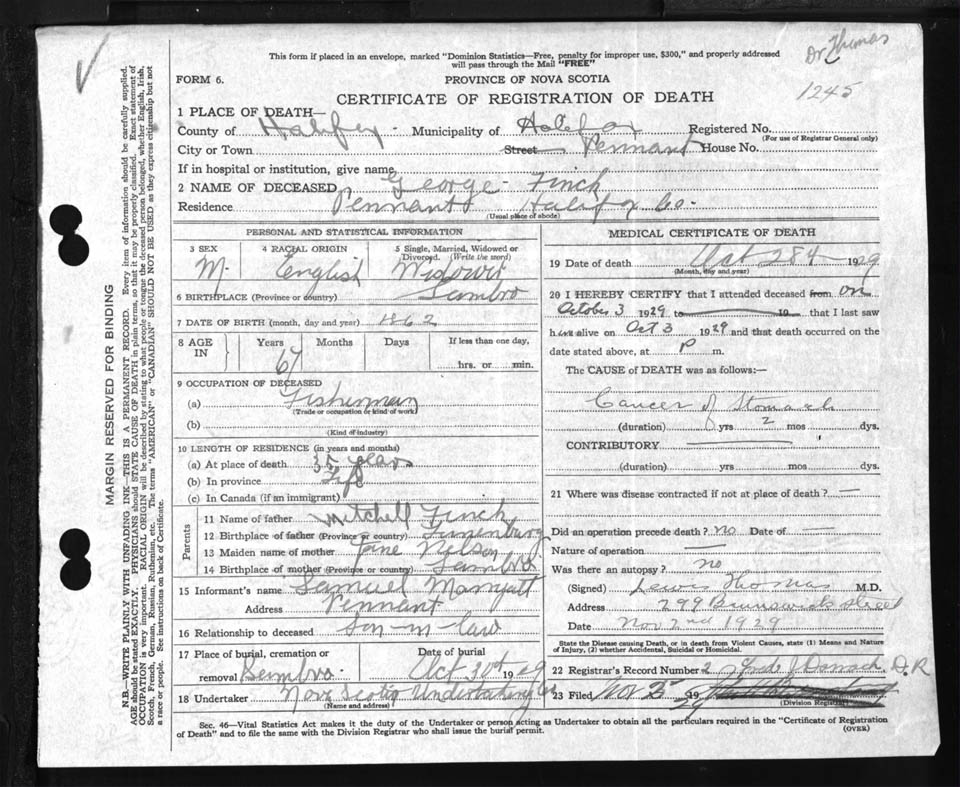 Dr Thomas
1245
This form if placed in an envelope, marked "Dominion Statistics—Free, penalty for improper use, $300," and properly addressed
will pass through the Mail "FREE"
FORM 6.
PROVINCE OF NOVA SCOTIA
CERTIFICATE OF REGISTRATION OF DEATH
1 PLACE OF DEATH—
County of Halifax - Municipality of Halifax Registered No.
(For use of Registrar General only)
City or Town Street Pennant House No.
If in hospital or institution, give name
2 NAME OF DECEASED George - Finch
Residence Pennant Halifax Co.
(Usual place of abode)
PERSONAL AND STATISTICAL INFORMATION
3 SEX 4 RACIAL ORIGIN 5 Single, Married, Widowed or
Divorced. (Write the word)
M. English Widower
6 BIRTHPLACE (Province or country) Sambro
7 DATE OF BIRTH (month, day and year) 1862
8 AGE IN Years Months Days If less than one day,
67 hrs. or min.
9 OCCUPATION OF DECEASED
(a) Fisherman
(Trade or occupation or kind of work)
(b)
(Kind of industry)
10 LENGTH OF RESIDENCE (in years and months)
(a) At place of death 35 years
(b) In province Life
(c) In Canada (if an immigrant)
Parents
11 Name of father Mitchell Finch
12 Birthplace of father (Province or country) Lunenburg
13 Maiden name of mother Jane Nelson
14 Birthplace of mother (Province or country) Sambro
15 Informant's name Samuel Marryatt
Address Pennant
16 Relationship to deceased Son-in-law
17 Place of burial, cremation or Date of burial
removal Sambro. Oct 30th 1929
18 Undertaker Nova Scotia Undertaking Co
(Name and address)
MEDICAL CERTIFICATE OF DEATH
19 Date of death Oct 28th 1929
(Month, day and year)
20 I HEREBY CERTIFY that I attended deceased from on
October 3 1929 to 19 that I last saw
him alive on Oct 3 1929 and that death occurred on the
date stated above, at P m.
The CAUSE of DEATH was as follows:—
Cancer of Stomach
(duration) yrs 2 mos dys.
CONTRIBUTORY
(duration) yrs mos dys.
21 Where was disease contracted if not at place of death? —
Did an operation precede death? no Date of —
Nature of operation —
Was there an autopsy? no
(Signed) Lewis Thomas M.D.
Address 299 Brunswick Street
Date Nov 2nd 1929
State the Disease causing Death, or in death from Violent Causes, state (1) Means and Nature
of Injury, (2) whether Accidental, Suicidal or Homicidal.
22 Registrar's Record Number 2 D.R
23 Filed Nov 25 1929
(Division Registrar)
Sec. 46—Vital Statistics Act makes it the duty of the Undertaker or person acting as Undertaker to obtain all the particulars required in the "Certificate of Registration
of Death" and to file the same with the Division Registrar who shall issue the burial permit.
(OVER)
MARGIN RESERVED FOR BINDING
N.B.—WRITE PLAINLY WITH UNFADING INK—THIS IS A PERMANENT RECORD. Every item of information should be carefully supplied.
AGE should be stated EXACTLY. PHYSICIANS should STATE CAUSE OF DEATH in plain terms, so that it may be properly classified. Exact statement of
OCCUPATION is very important. RACIAL ORIGIN will be described by stating to what people or tongue the deceased person belonged, whether English, Irish,
Scotch, French, German, Russian, Ruthenian, etc. The terms "AMERICAN" or "CANADIAN" SHOULD NOT BE USED as they express citizenship but not
a race or people. See instructions on back of Certificate.